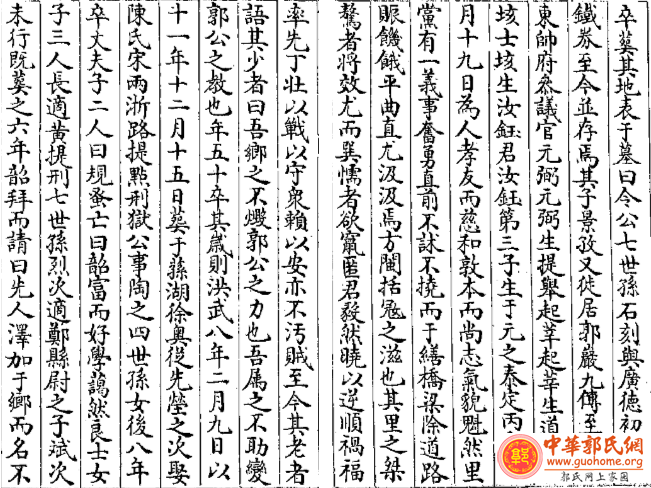 卒葬其地表于墓曰令公七世孫石刻與廣德初
鐵券至今並存焉其子景孜又徙居郭嚴九傳至
東帥府叅議官元弼元弼生提舉起莘起莘生道
垓士垓生汝鈺君汝鈺第三子生于元之泰定丙
月十九日為人孝友而慈和敦本而尚志氣貌魁然里
黨有一義事奮勇直前不訹不撓而于繕橋梁除道路
賑饑餓平曲直尤汲汲焉方閩括冦之滋也其里之桀
驁者將效尤而巽懦者欲竄匿君毅然曉以逆順禍福
率先丁壯以戰以守衆賴以安亦不汚賊至今其老者
語其少者曰吾鄉之不燬郭公之力也吾属之不助變
郭公之教也年五十卒其嵗則洪武八年二月九日以
十一年十二月十五日葬于孫湖徐奥從先塋之次娶
陳氏宋兩浙路提點刑獄公事陶之四世孫女後八年
卒丈夫子二人曰規蚤亡曰韶富而好學藹然良士女
子三人長適黄提刑七世孫烈次適鄭縣尉之子斌次
未行既葬之六年韶拜而請曰先人澤加于鄉而名不
中華郭氏網
www.guohome.org
郭氏网上家园